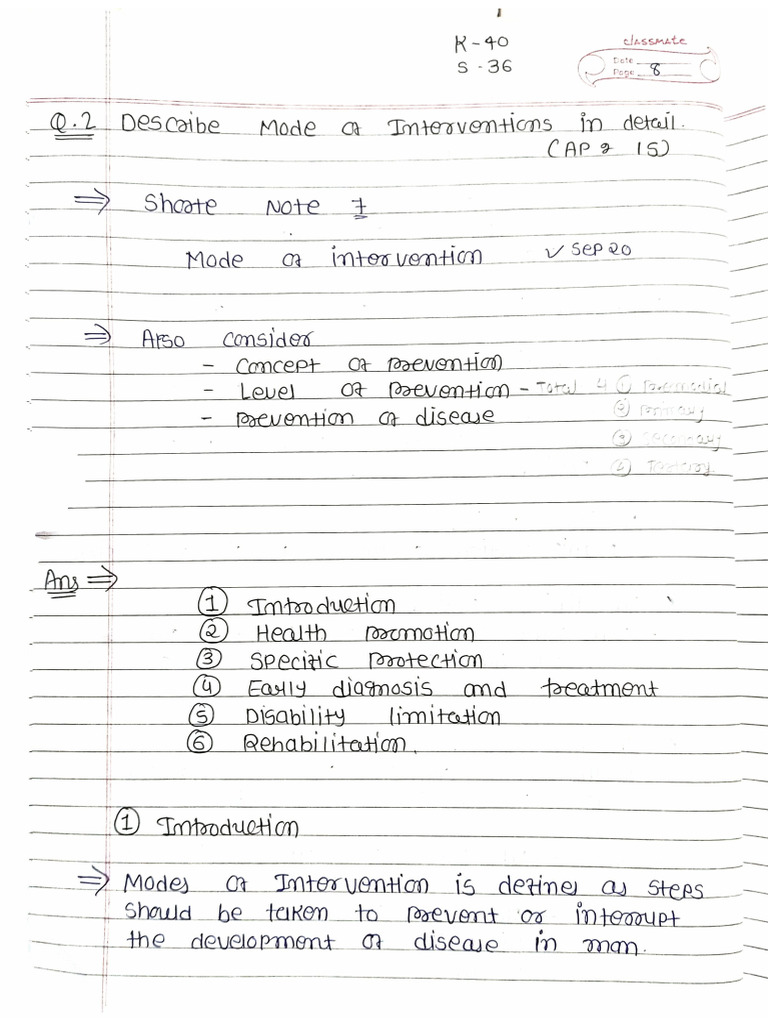 K-40
S-36
classmate
Date
Page 8
Q.2 Describe Mode of Interventions in detail.
(Apr 15)
⇒ Shorte Note 7
Mode of intervention ✓ Sep 20
⇒ Also consider
- Concept of prevention
- Level of prevention - Total 4 ① Premodial
② Primary
- prevention of disease
③ Secondary
④ Tertiary
Ans ⇒
① Introduction
② Health promotion
③ Specific protection
④ Early diagnosis and treatment
⑤ Disability limitation
⑥ Rehabilitation.
① Introduction
⇒ Modes of Intervention is defines as steps
should be taken to prevent or interrupt
the development of disease in man.